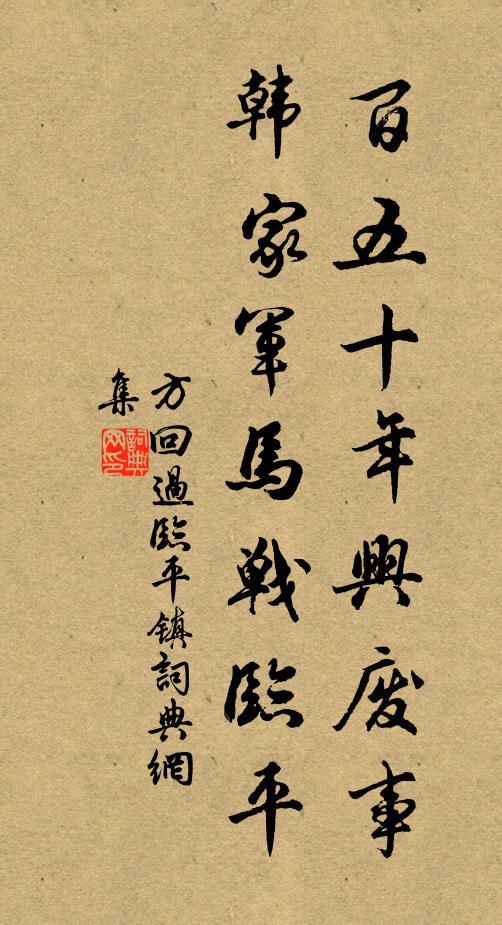 百五十年興廢事
韩家軍馬戦臨平
方回過臨平镇詞典網
集
詞典网印